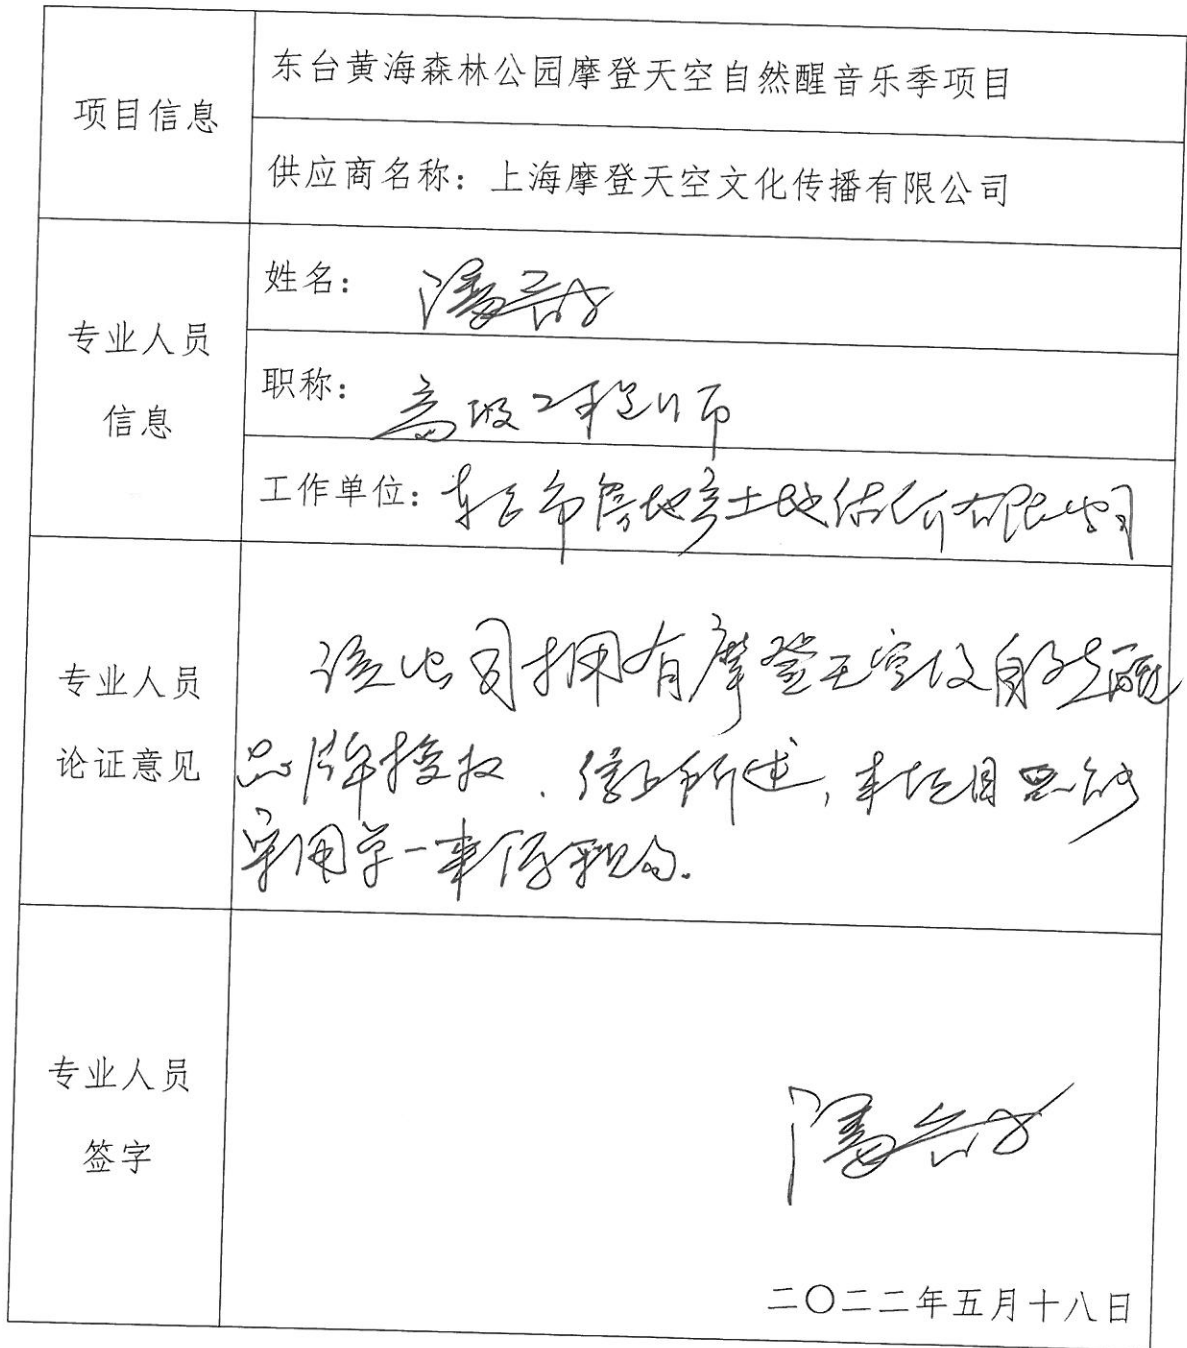 项目信息
东台黄海森林公园摩登天空自然醒音乐季项目
供应商名称：上海摩登天空文化传播有限公司
专业人员
信息
姓名：潘
职称：高级工程师
工作单位：东台市房地产土地估价有限公司
专业人员
论证意见
该公司拥有摩登天空及自然醒
品牌授权、综上所述，本项目只能
采用单一来源采购。
专业人员
签字
潘
二〇二二年五月十八日